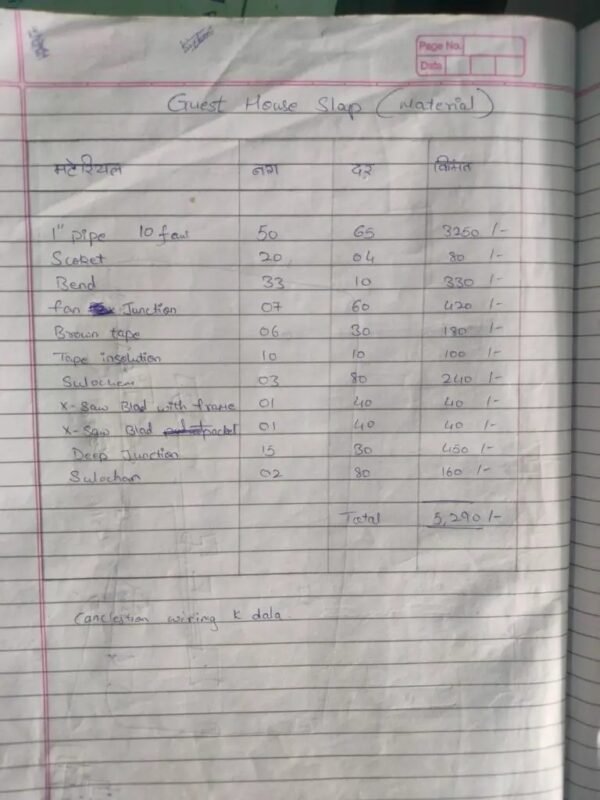 Page No.
Date
Guest House Slap (Material)
मटेरियल नग दर किंमत
1" Pipe 10 feet 50 65 3250 /-
Scobet 20 04 80 /-
Bend 33 10 330 /-
fan Junction 07 60 420 /-
Brown tape 06 30 180 /-
Tape insolution 10 10 100 /-
Sulochem 03 80 240 /-
X-Saw Blad with frame 01 40 40 /-
X-Saw Blad packet 01 40 40 /-
Deep Junction 15 30 450 /-
Sulochan 02 80 160 /-
Total 5,290 /-
wiring k dala